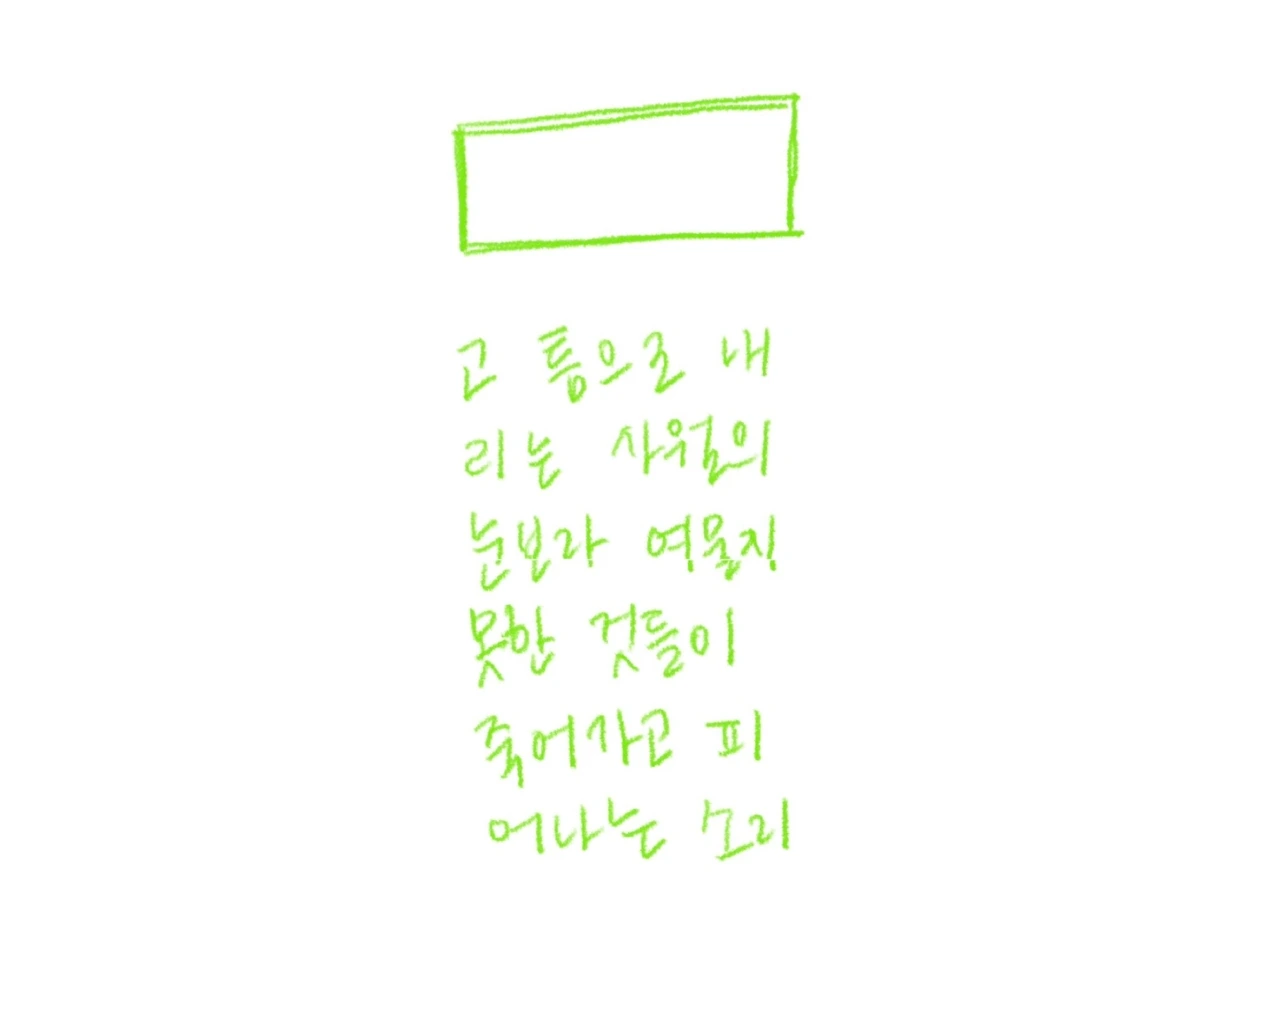 고 통으로 내
리는 사월의
눈보라 여물지
못한 것들이
죽어가고 피
어나는 소리